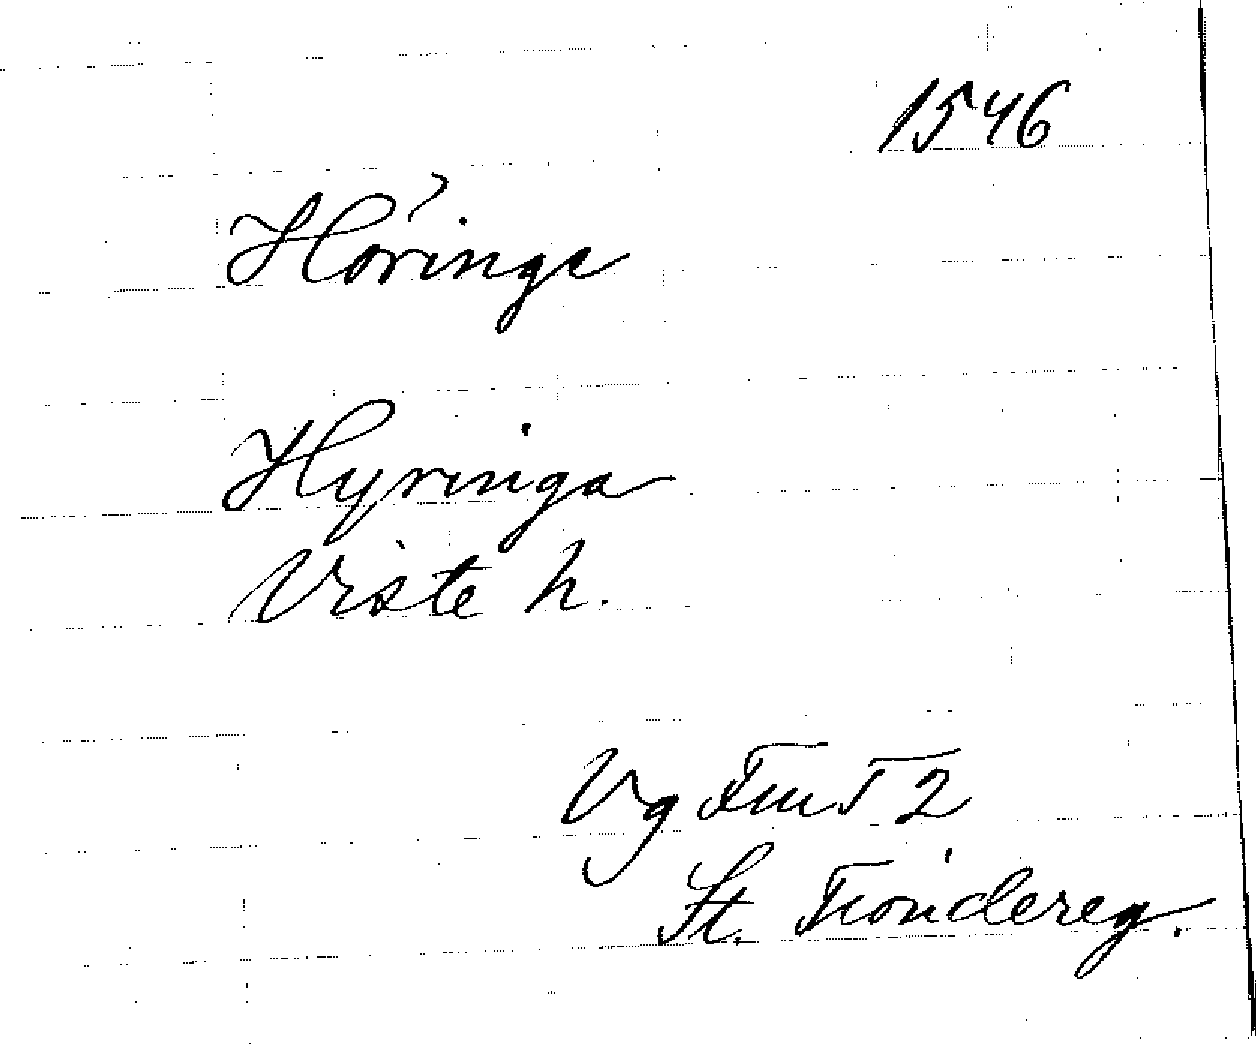 1546
Höringe
Hyringa
Viste h.
Vg Tiut 2
St. Tiondereg.